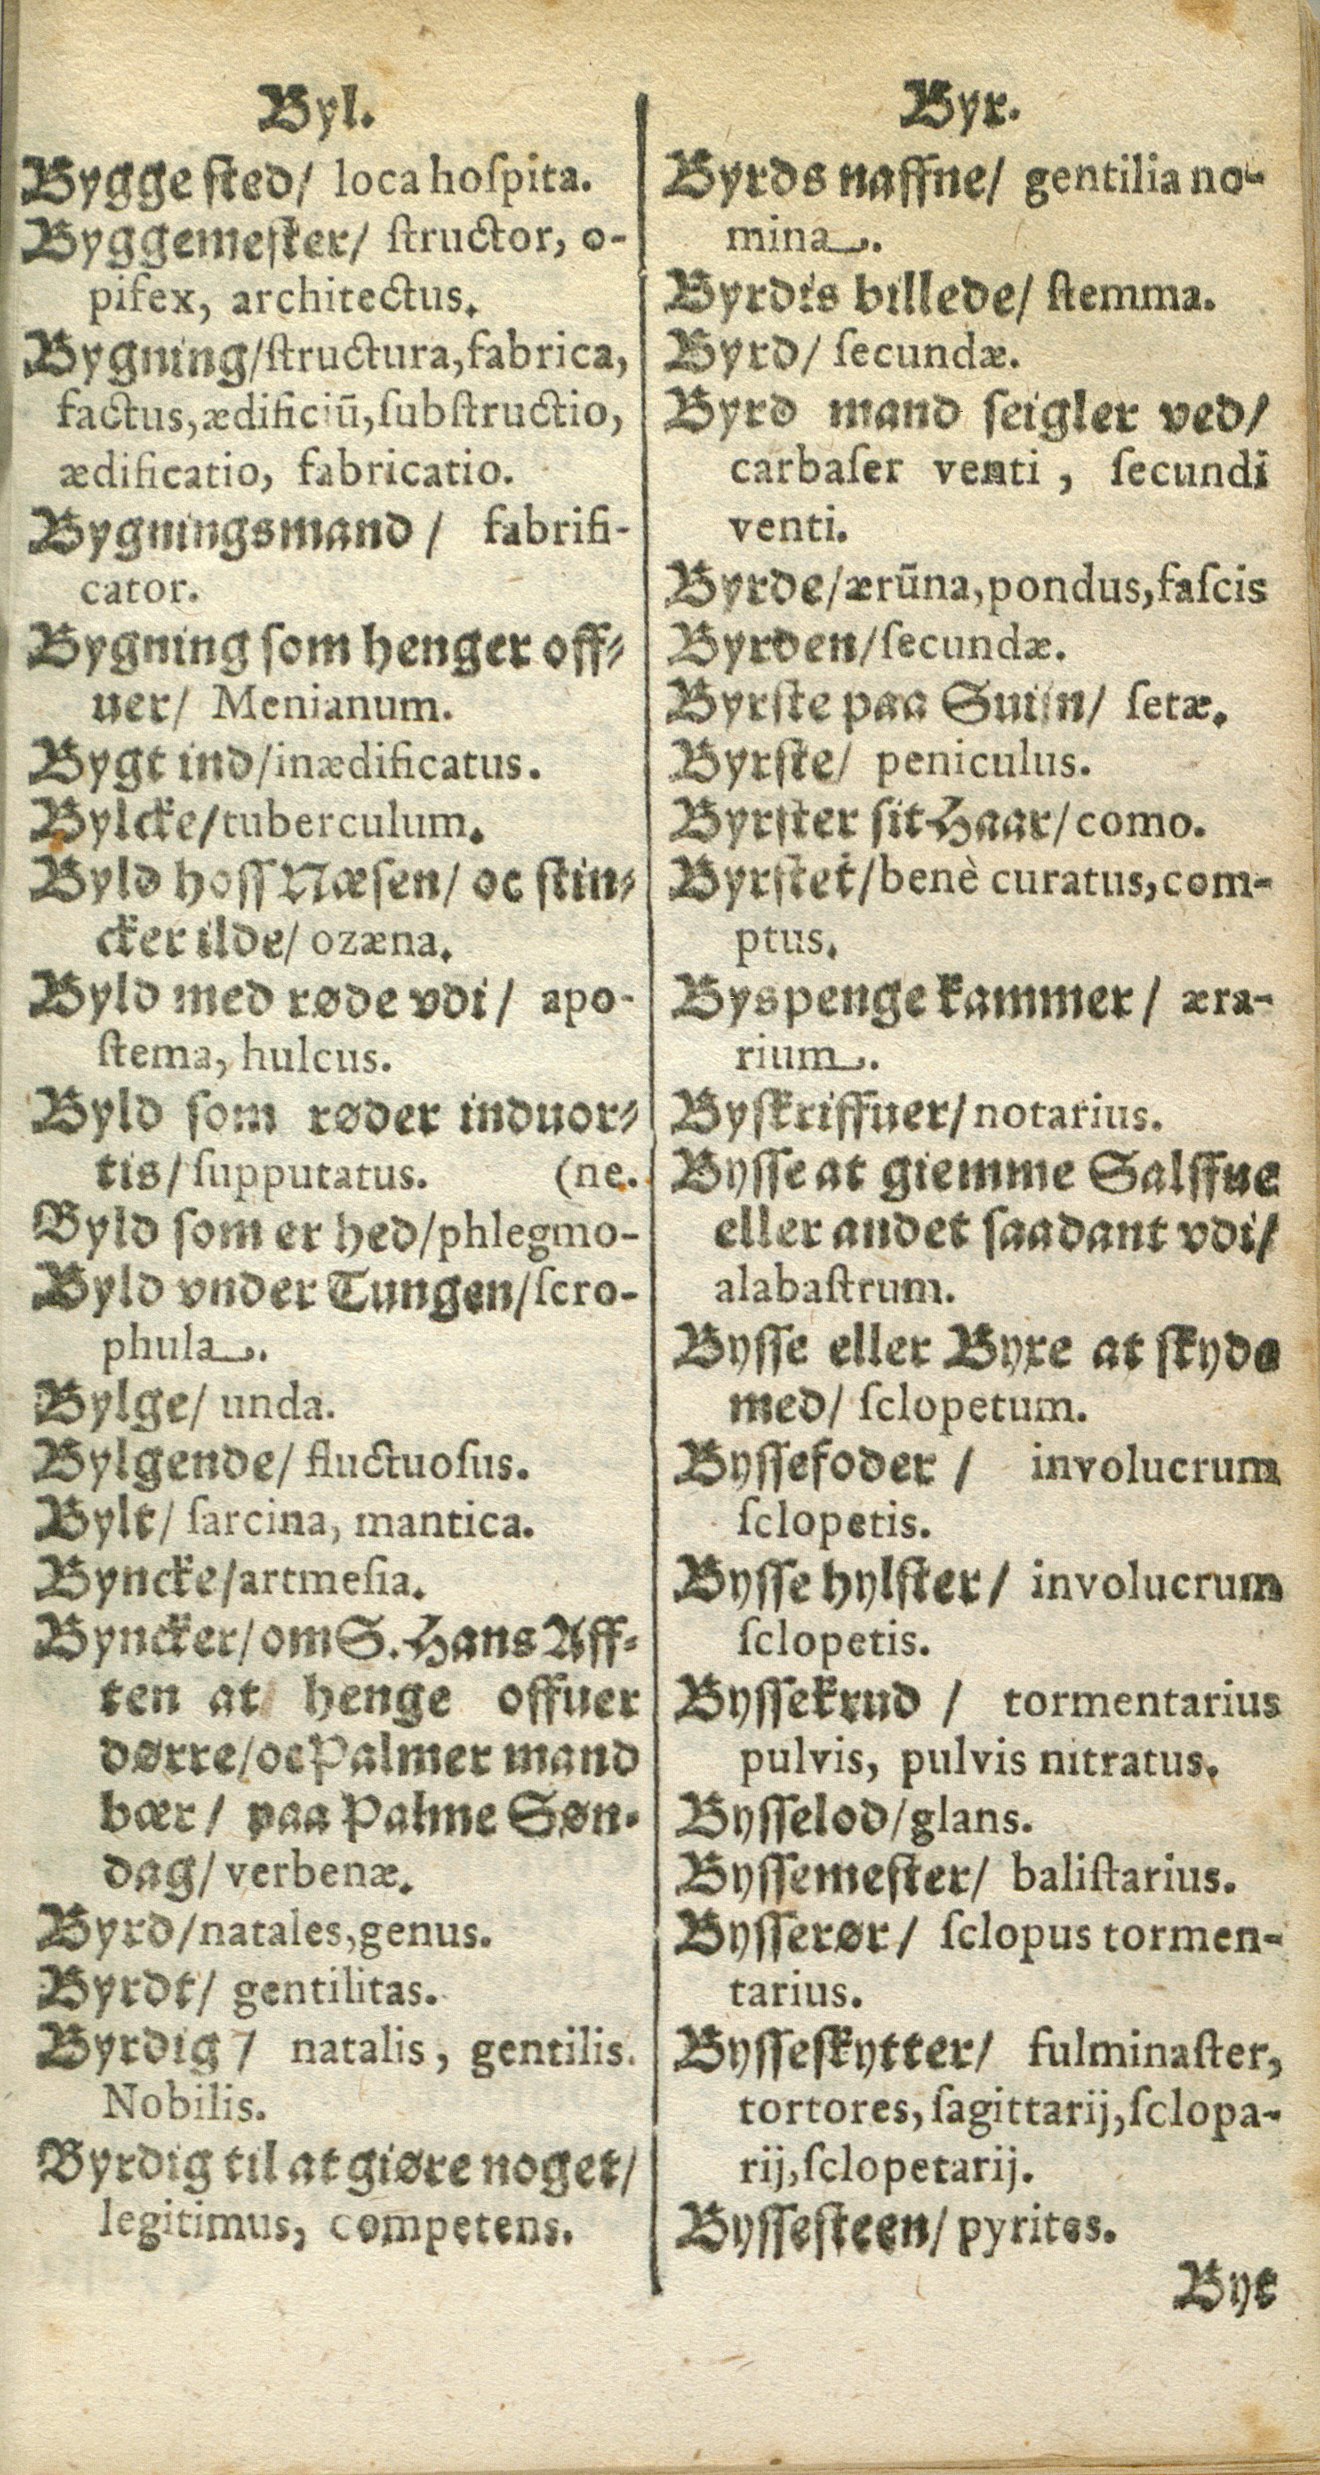 Byl.
Bygge sted/ loca hoſpita.
Byggemeſter/ ſtructor, o-
pifex, architectus.
Bygning/ſtructura,fabrica,
factus,ædificiū,ſubſtructio,
ædificatio, fabricatio.
Bygningsmand / fabrifi-
cator.
Bygning ſom henger off-
uer/ Menianum.
Bygt ind/inædificatus.
Bylcke/tuberculum.
Byld hoſſ Næſen/ oc ſtin-
cker ilde/ ozæna.
Byld med røde vdi/ apo-
ſtema, hulcus.
Byld ſom røder induor-
tis/ſupputatus. (ne.
Byld ſom er hed/phlegmo-
Byld vnder Tungen/ſcro-
phula.
Bylge/ unda.
Bylgende/ fluctuoſus.
Bylt/ ſarcina, mantica.
Byncke/artmeſia.
Byncker/om S. Hans Aff-
ten at henge offuer
dørre/oc Palmer mand
bær/ paa Palme Søn-
dag/ verbenæ.
Byrd/natales,genus.
Byrdt/ gentilitas.
Byrdig / natalis, gentilis.
Nobilis.
Byrdig til at giøre noget/
legitimus, competens.
Byr.
Byrds naffne/ gentilia no-
mina.
Byrdis billede/ ſtemma.
Byrd/ ſecundæ.
Byrd mand ſeigler ved/
carbaſer venti, ſecundi
venti.
Byrde/ærūna,pondus,faſcis
Byrden/ſecundæ.
Byrſte paa Suiin/ ſetæ.
Byrſte/ peniculus.
Byrſter ſit Haar/como.
Byrſtet/benè curatus,com-
ptus.
Byspenge kammer/ æra-
rium.
Byſkriffuer/notarius.
Byſſe at giemme Salffue
eller andet ſaadant vdi/
alabaſtrum.
Byſſe eller Byre at ſkyde
med/ ſclopetum.
Byſſefoder / involucrum
ſclopetis.
Byſſe hylſter/ involucrum
ſclopetis.
Byſſekrud / tormentarius
pulvis, pulvis nitratus.
Byſſelod/glans.
Byſſemeſter/ baliſtarius.
Byſſerør/ ſclopus tormen-
tarius.
Byſſeſkytter/ fulminaſter,
tortores, ſagittarij,ſclopa-
rij,ſclopetarij.
Byſſeſteen/pyrites.
Byt